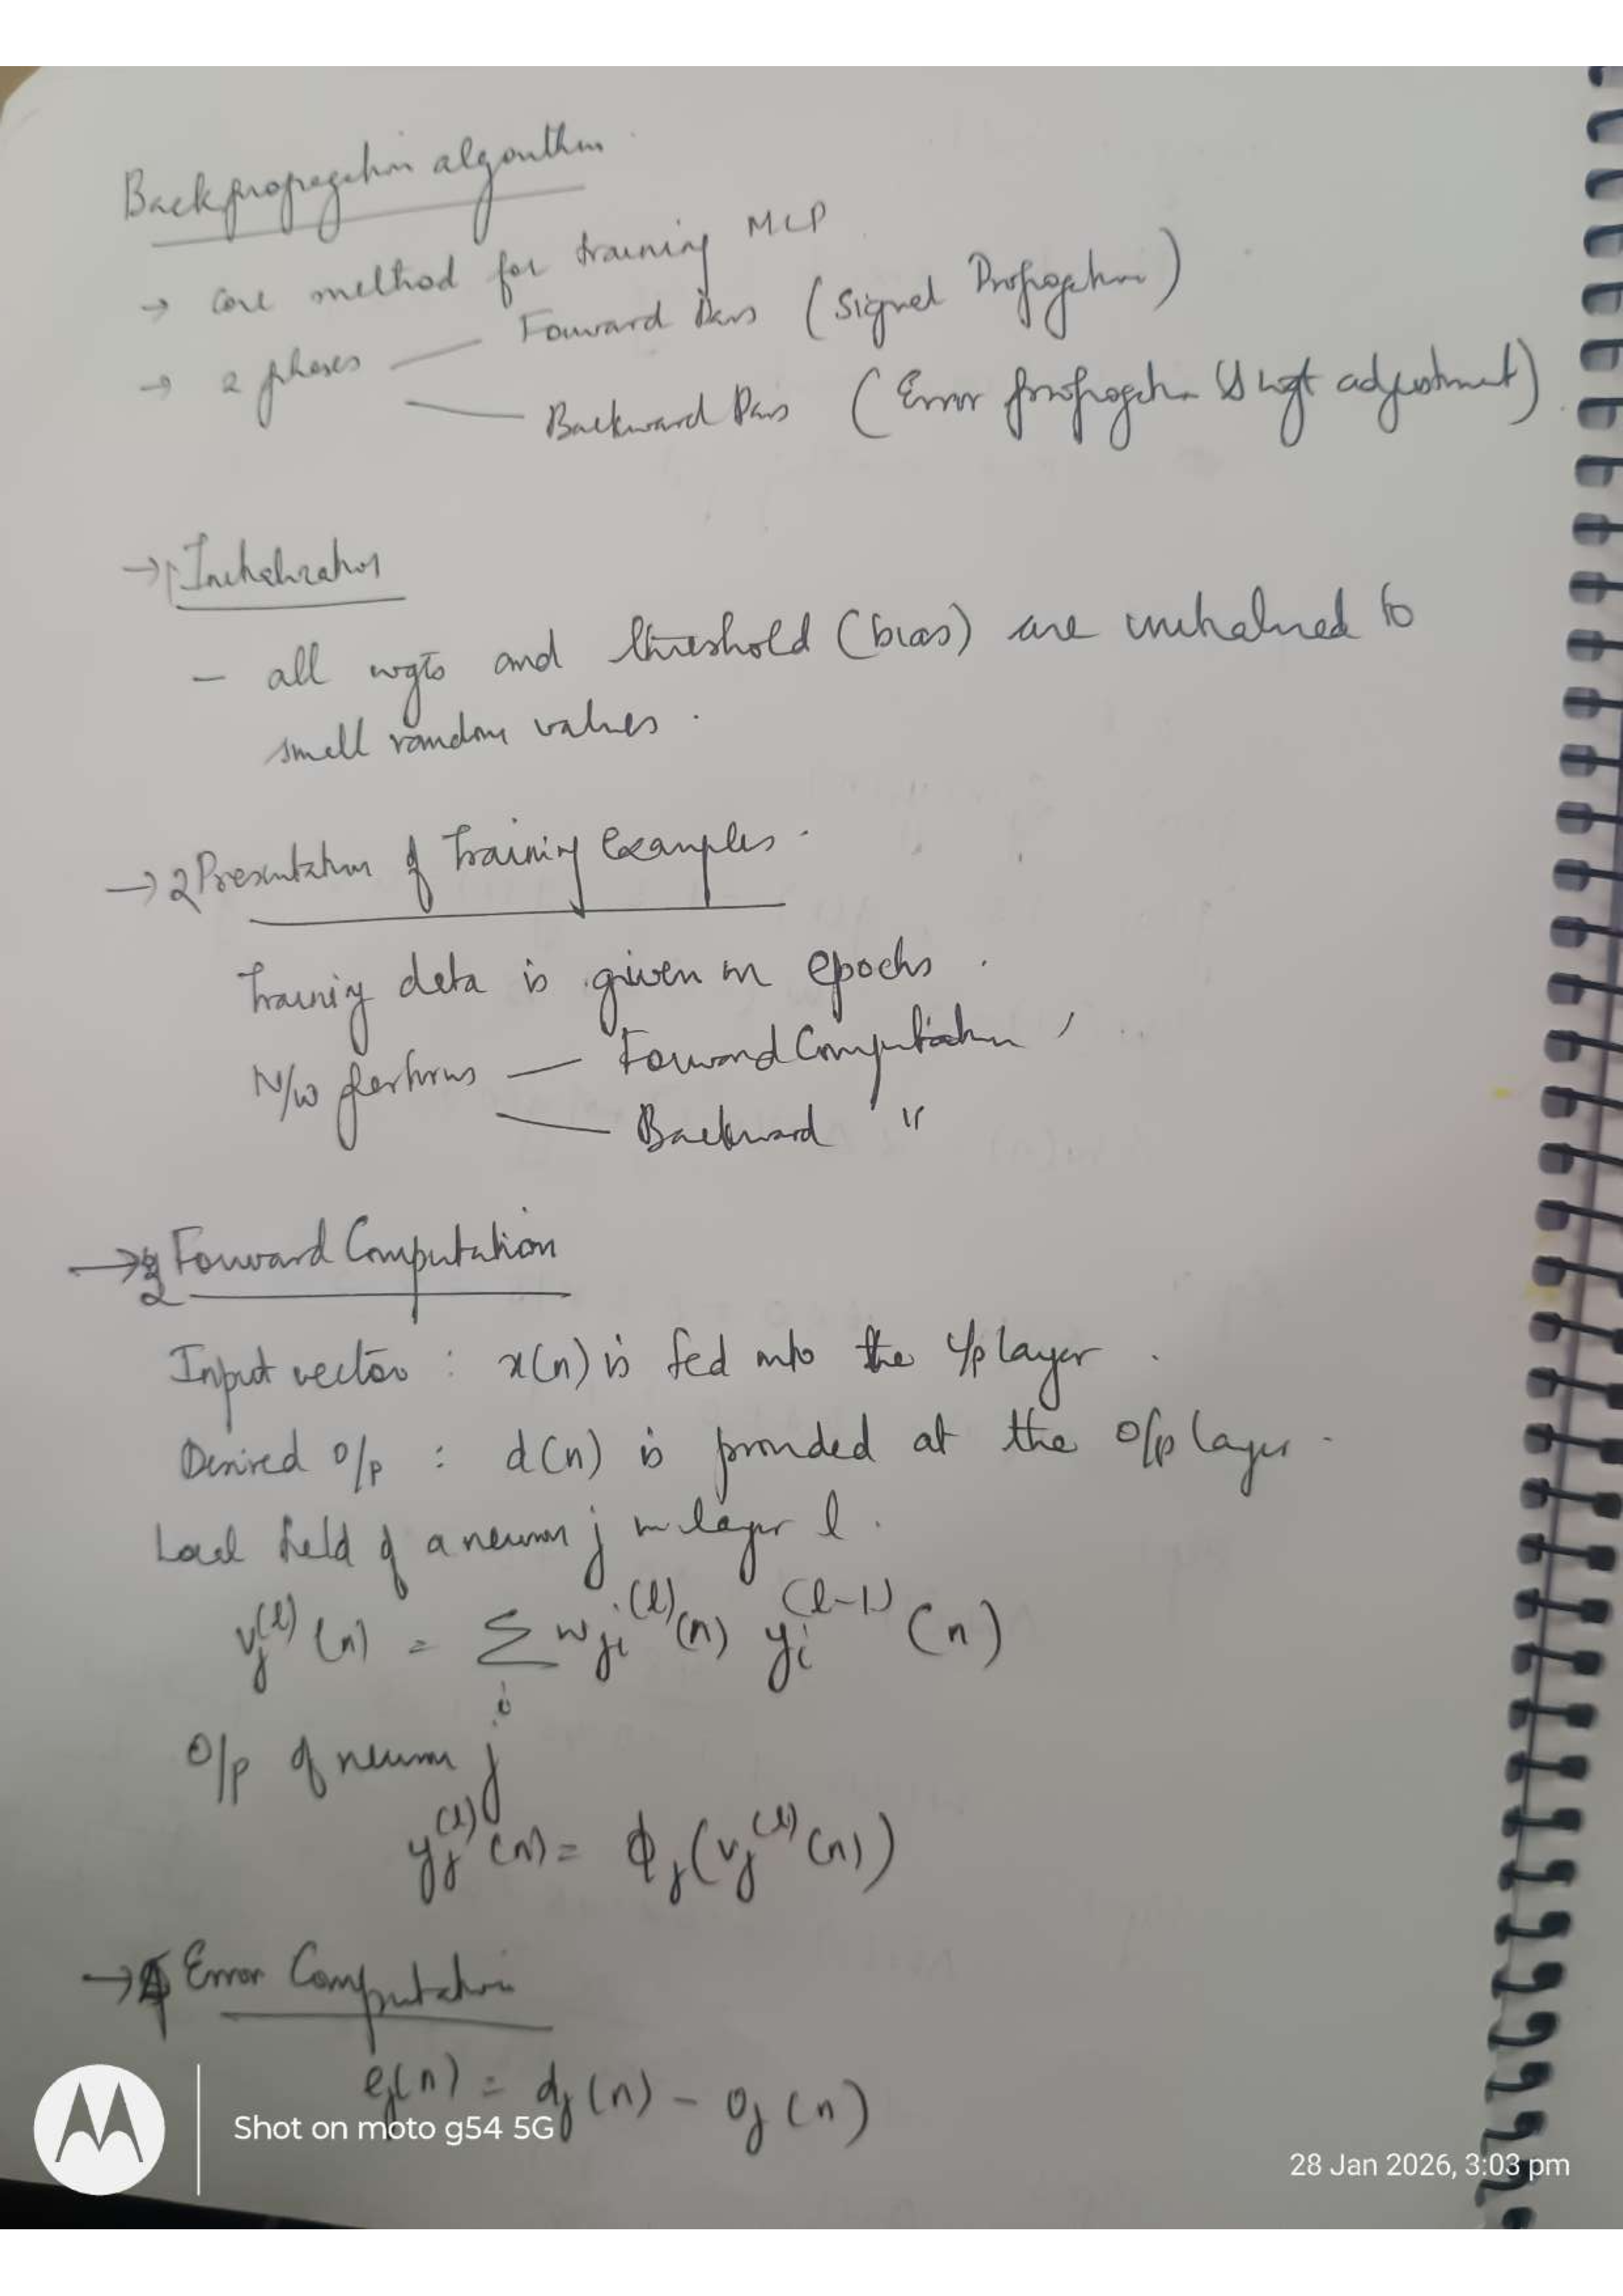 Backpropagation algorithm
→ core method for training MLP
→ 2 phases — Forward Pass (Signal Propagation)
— Backward Pass (Error propagation & wgt adjustment)
→ 1 Initialization
- all wgts and threshold (bias) are initialized to
small random values.
→ 2 Presentation of Training Examples.
Training data is given in epochs.
N/w performs — Forward Computation
— Backward "
→ 3 Forward Computation
Input vector : x(n) is fed into the i/p layer.
Desired o/p : d(n) is provided at the o/p layer.
Local field of a neuron j in layer l.
v_j^(l) (n) = Σ_i w_ji^(l) (n) y_i^(l-1) (n)
O/p of neuron j
y_j^(l) (n) = φ_j (v_j^(l) (n))
→ 4 Error Computation
e_j(n) = d_j(n) - o_j(n)
Shot on moto g54 5G
28 Jan 2026, 3:03 pm